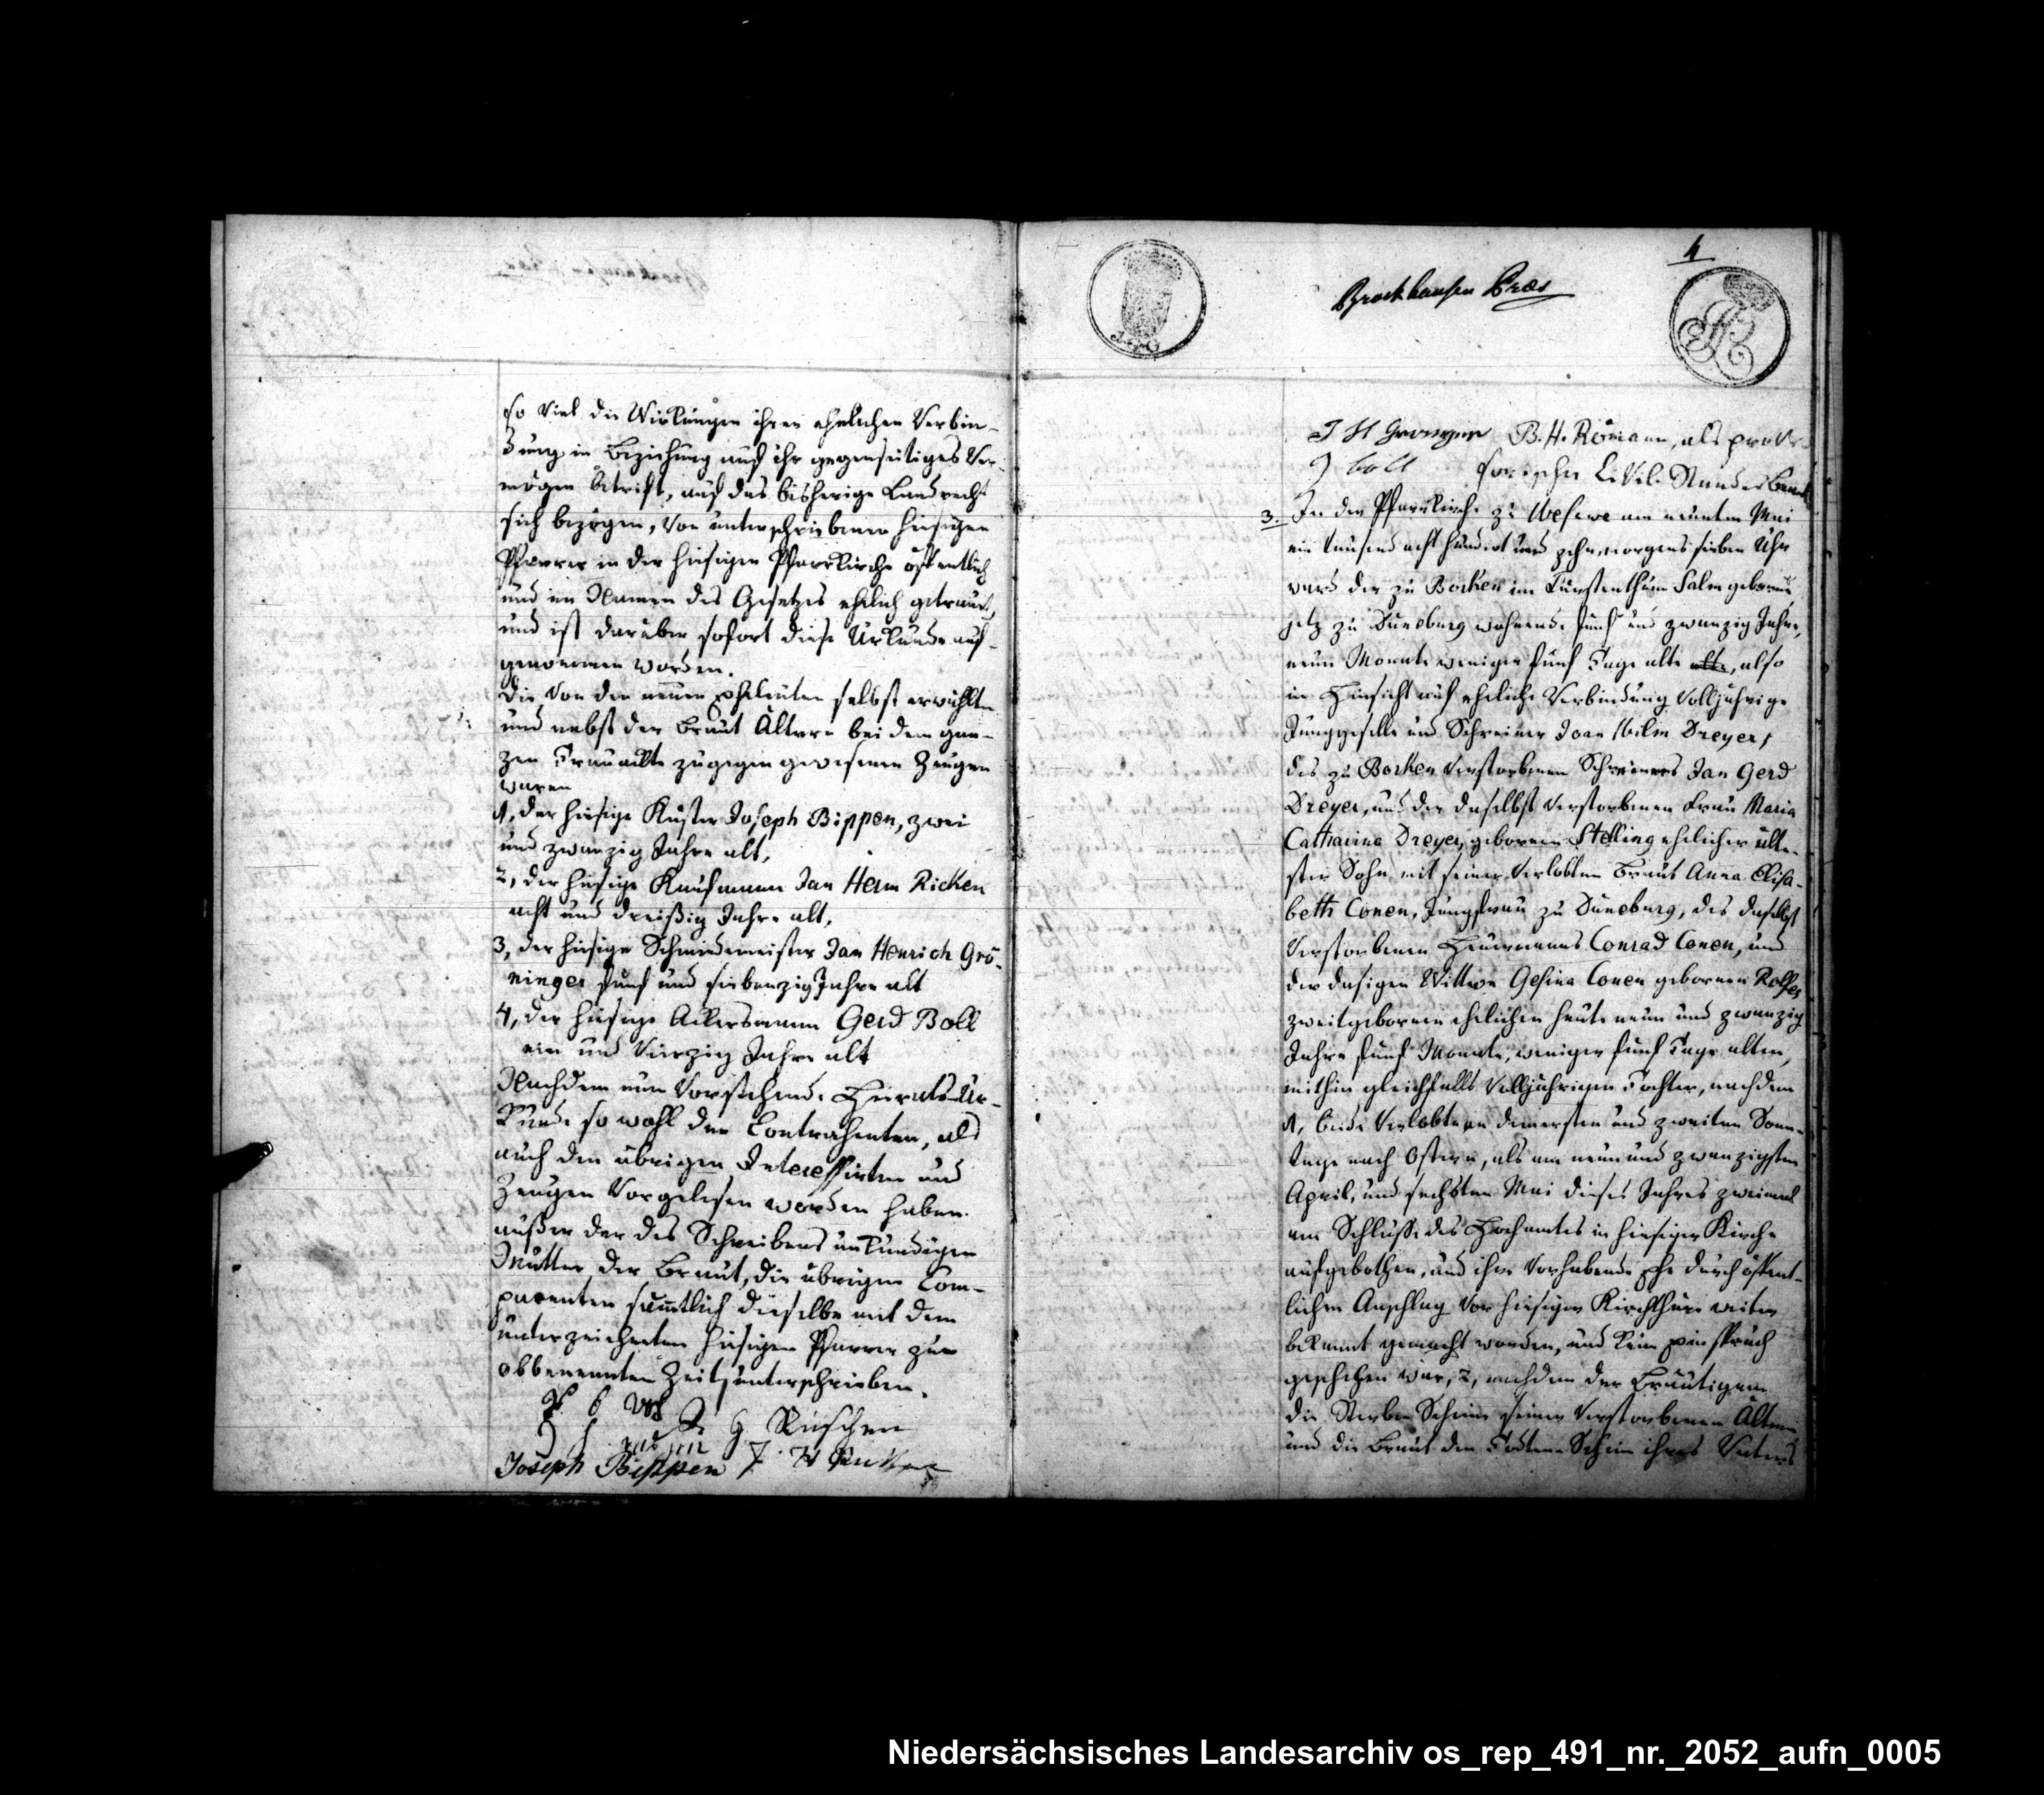 so viel die Wirkungen ihrer ehelichen Verbin-
dung in Beziehung auf ihr gegenseitiges Ver-
mögen betrift, auf das bisherige Landrecht
sich bezogen, von unterschriebenen hiesigen
Pfarrer in der hiesigen Pfarrkirche öffentlich
und im Namen des Gesetzes ehelich getraut,
und ist darüber sofort diese Urkunde auf-
genommen worden.
Die von den neuen Eheleuten selbst erwählten
und nebst der Braut Ältern bei dem gan-
zen Trauackte zugegen gewesenen Zeugen
waren
1, der hiesige Küster Joseph Bippen, zwei
und zwanzig Jahre alt,
2, der hiesige Kaufmann Jan Herm Ricken
acht und dreißig Jahre alt,
3, der hiesige Schmiedemeister Jan Henrich Grö-
ninger fünf und siebenzig Jahre alt
4, der hiesige Ackersmann Gerd Boll
ein und vierzig Jahre alt
Nachdem nun vorstehende Heirats-Ur-
kunde so wohl den Contrahenten, als
auch den übrigen Interessirten und
Zeugen vorgelesen worden haben
außer der des Schreibens unkundigen
Mutter der Braut, die übrigen Com-
parenten sämtlich dieselbe mit dem
unterzeichneten hiesigen Pfarrer zur
obbenannten Zeit unterschrieben.
Joseph Bippen
4
Brockhausen Præs
B. H. Römann, als provi-
J boll sorischer Civil-Stands Beamte
3. In der Pfarrkirche zu Wesuwe am neunten Mai
ein tausend acht hundert und zehn, morgens sieben Uhr
ward der zu Borken im Fürstenthum Salm geborne,
jetz zu Düneburg wohnende fünf und zwanzig Jahre,
neun Monate weniger fünf Tage alte alte, also
in Hinsicht auf eheliche Verbindung volljährige
Junggeselle und Schreiner Joan Wilm Dreyer,
des zu Borken verstorbenen Schreiners Jan Gerd
Dreyer, und der daselbst verstorbenen Frau Maria
Catharina Dreyer, gebornen Stelling ehelicher älte-
ster Sohn mit seiner verlobten Braut Anna Elisa-
beth Conen, Jungfrau zu Düneburg, des daselbst
verstorbenen Heuermanns Conrad Conen, und
der dasigen Wittwe Gesina Conen gebornen Rolfes
zweitgebornen ehelichen heute neun und zwanzig
Jahre fünf Monate, weniger fünf Tage alten,
mithin gleichfalls volljährigen Tochter, nachdem
1, beide Verlobte an dem ersten und zweiten Sonn-
tage nach Ostern, als am neun und zwanzigsten
April, und sechsten Mai dieses Jahres zweimal
am Schlusse des Hochamtes in hiesiger Kirche
aufgebothen, und ihre vorhabende Ehe durch öffent-
lichen Anschlag vor hiesiger Kirchthüre weiter
bekannt gemacht worden, und kein Einspruch
geschehen war, 2, nachdem der Bräutigam
die Sterbe Scheine seiner verstorbenen Ältern
und die Braut den Todten-Schein ihres Vaters
Niedersächsisches Landesarchiv os_rep_491_nr._2052_aufn_0005